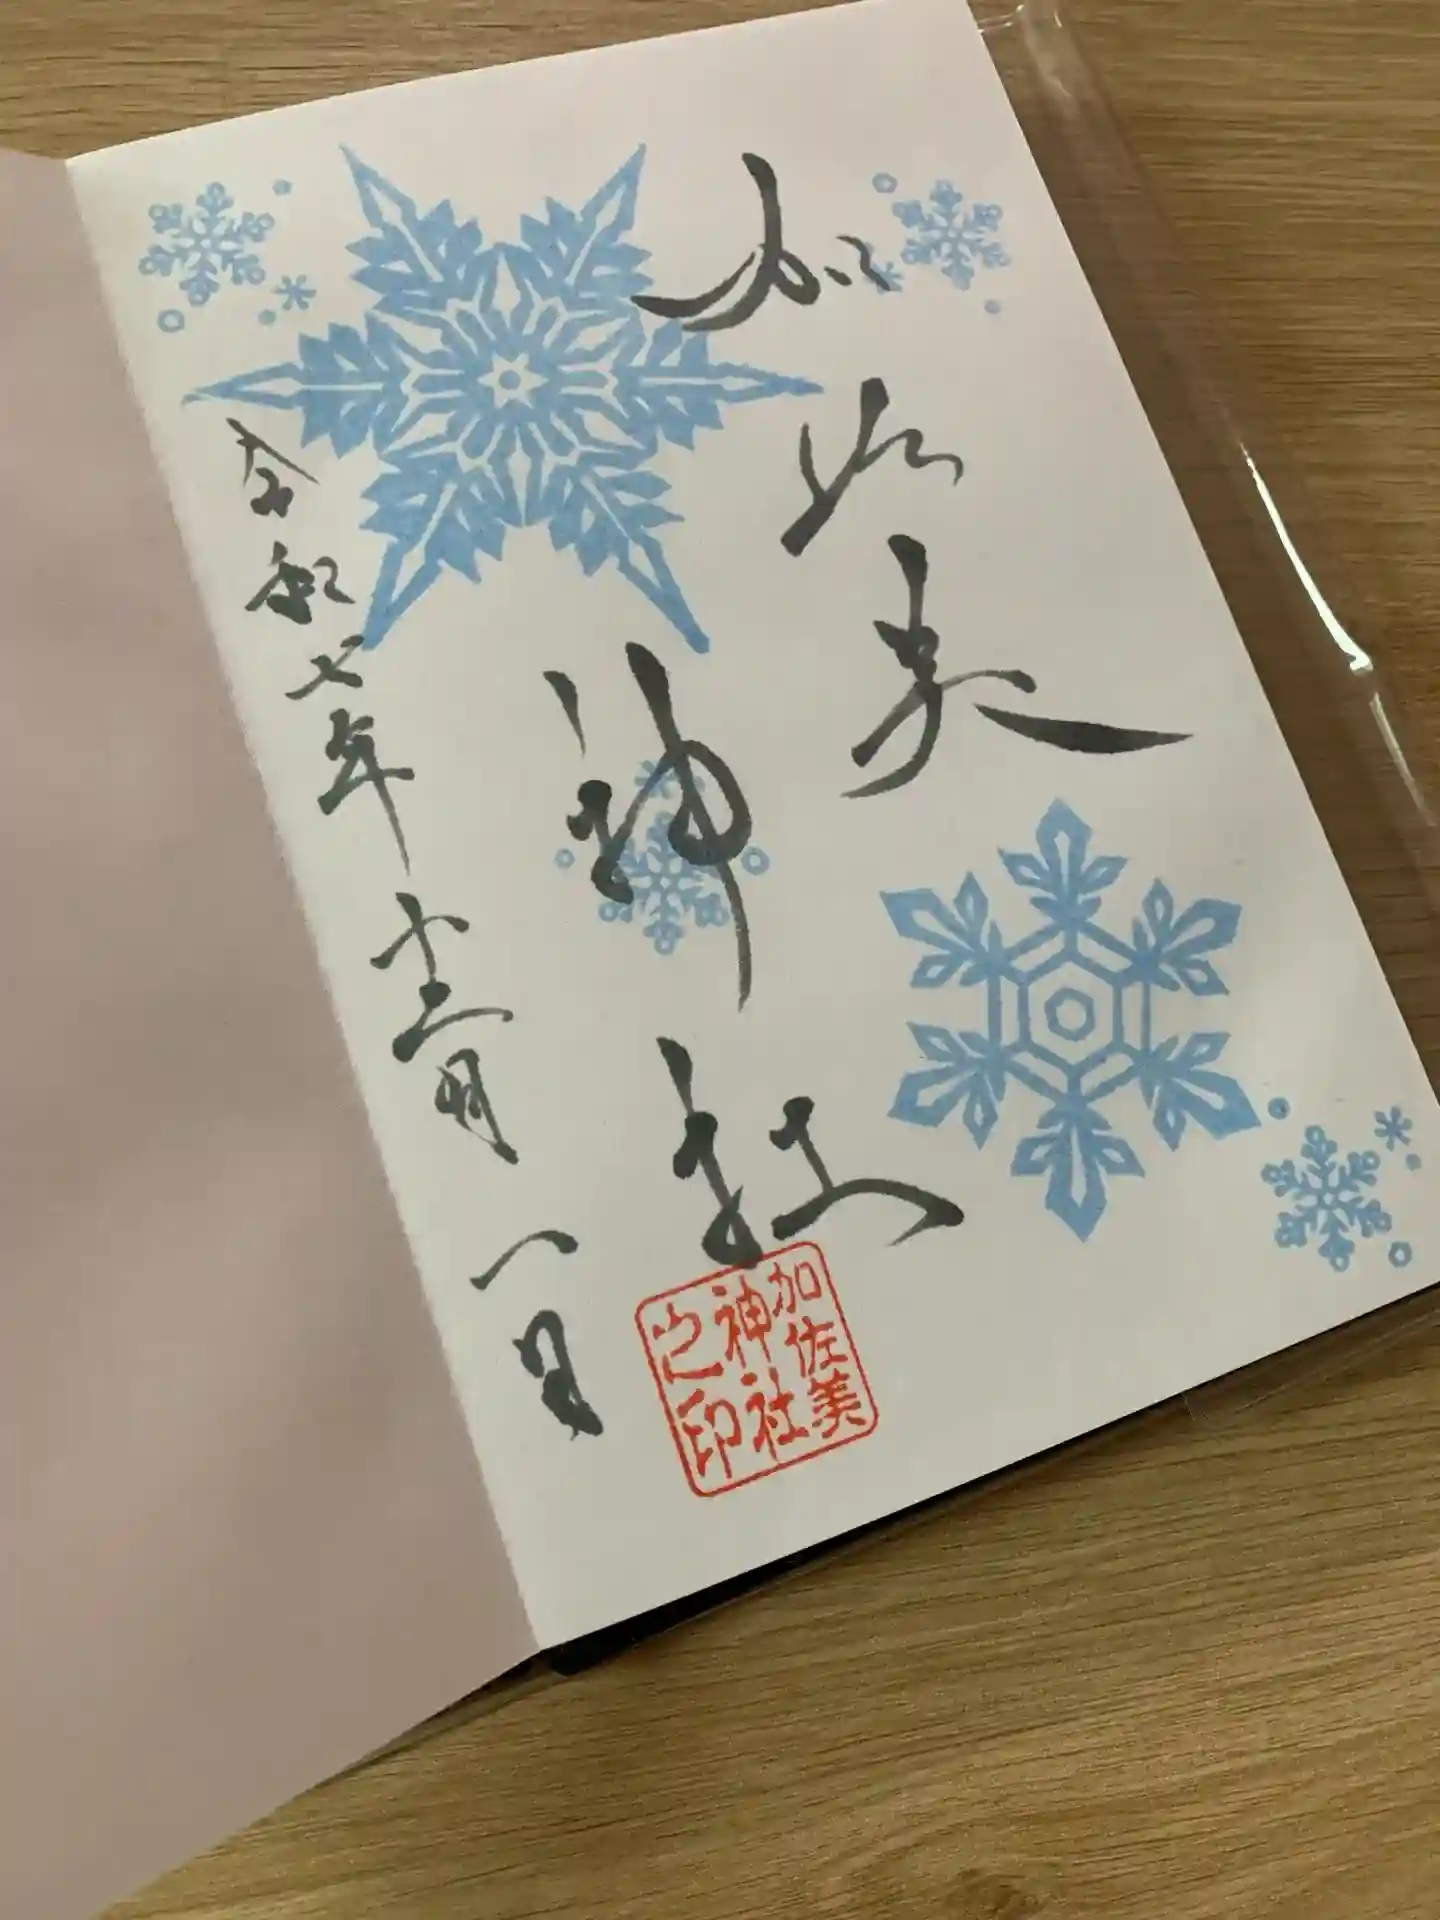 加佐美
神社
令和七年十二月一日
加佐美
神社
之印